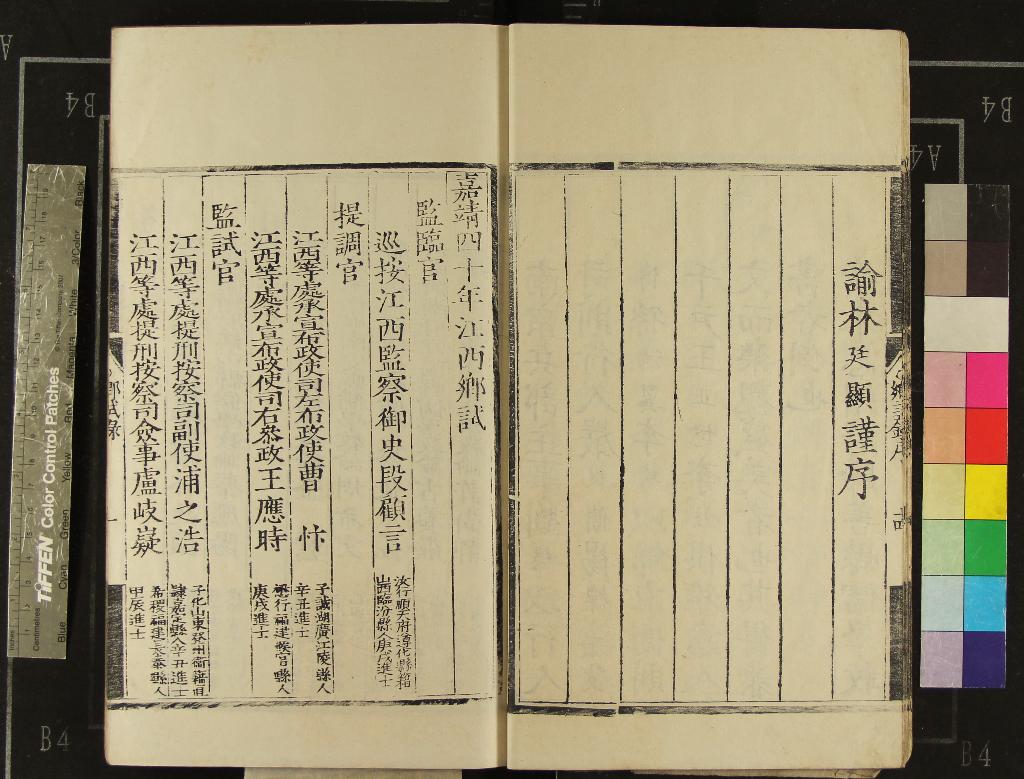 諭林廷顯謹序
嘉靖四十年江西鄉試
監臨官
巡按江西監察御史段顧言
山西臨汾縣人庚戌進士
提調官
江西等處承宣布政使司左布政使曹 忭
子誠湖廣江陵縣人
辛丑進士
江西等處承宣布政使司右叅政王應時
行福建候官縣人
庚戌進士
監試官
江西等處提刑按察司副使浦之浩
子化山東登州衛籍直
隸嘉定縣人辛丑進士
江西等處提刑按察司僉事盧岐嶷
希稷福建長泰縣人
甲辰進士
鄉試錄
一
TIFFEN Color Control Patches
Blue
Cyan
Green
Yellow
Red
Magenta
White
3/Color
Black
Centimetres
A4
B4
B4
B4
B4
A